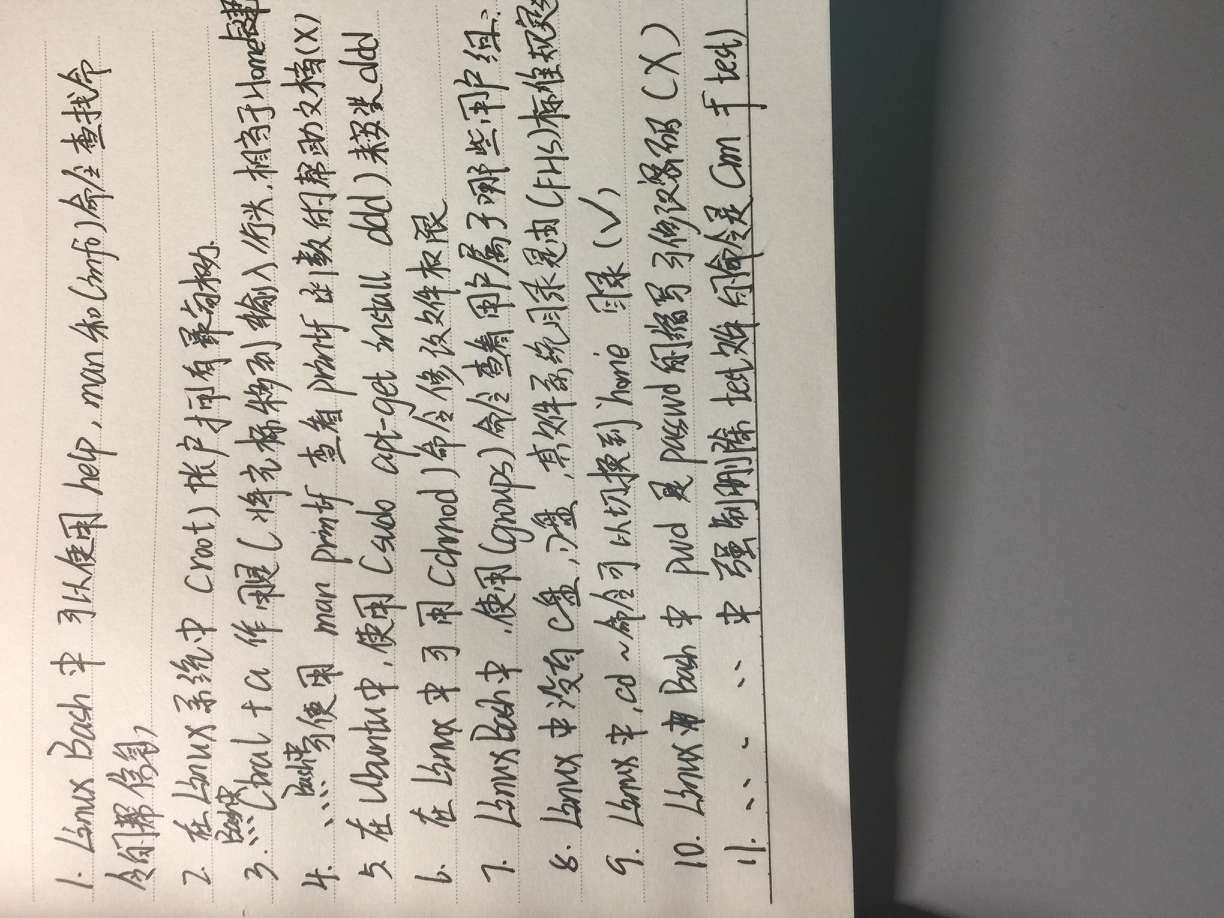 1. Linux Bash 中 可以使用 help, man 和 (info) 命令查找命
令的帮助信息
2. 在 Linux 系统中 (root) 帐户拥有最高权力.
Bash中
3. ∵∵ Ctrl + a 作用是 (将光标移到输入行头, 相当于Home键
4. ∵∵ Bash中 可使用 man printf 查看 printf 函数的帮助文档 (X)
5. 在 Ubuntu中, 使用 (sudo apt-get install ddd) 来安装 ddd
6. 在 Linux 中可用 (chmod) 命令修改文件权限
7. Linux Bash中, 使用 (groups) 命令查看用户属于哪些用户组.
8. Linux 中没有 C盘, D盘, 其文件系统目录是由 (FHS) 标准规定
9. Linux 中, cd ~ 命令可以切换到 home 目录 (√)
10. Linux 的 Bash 中 pwd 是 passwd 的缩写 可修改密码 (X)
11. ∵ ∵ ∵ 中 强制删除 test文件 的命令是 (rm -f test)